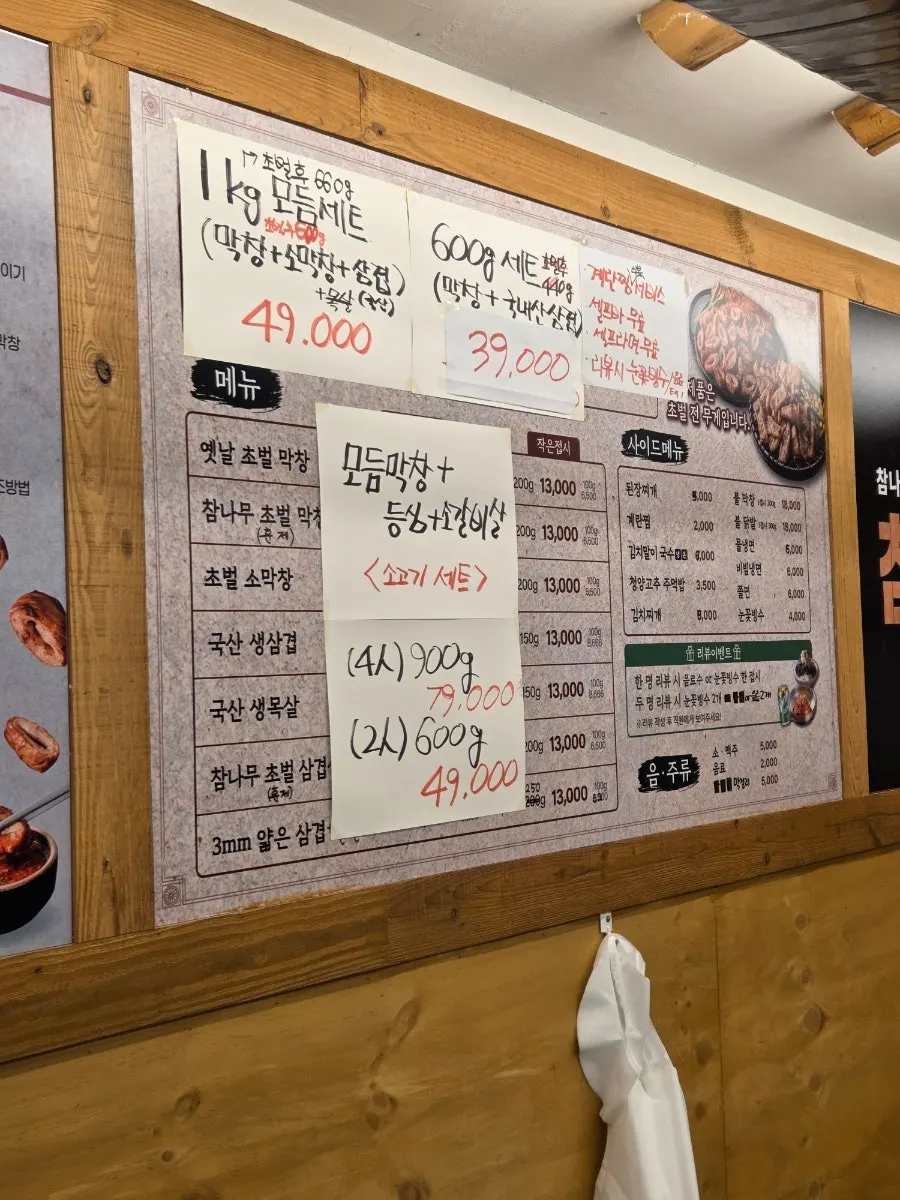 초벌후 660g
1kg 모듬세트
(막창+소막창+삼겹)
+목살 (국산)
49.000
600g 세트 초벌후 440g
(막창 + 국내산삼겹)
39,000
계란찜 서비스
셀프바 무료
셀프라면 무료
리뷰시 눈꽃빙수/음료
제품은
초벌 전 무게입니다.
메뉴
작은접시
옛날 초벌 막창
200g 13,000 100g 6,500
참나무 초벌 막창
(훈제)
200g 13,000 100g 6,500
초벌 소막창
200g 13,000 100g 6,500
국산 생삼겹
150g 13,000 100g 8,666
국산 생목살
150g 13,000 100g 8,666
참나무 초벌 삼겹
(훈제)
200g 13,000 100g 6,500
3mm 얇은 삼겹
13,000 100g
모듬막창+
등심+소갈비살
<소고기 세트>
(4人) 900g
79.000
(2人) 600g
49.000
사이드메뉴
된장찌개 5,000
계란찜 2,000
김치말이 국수 6,000
청양고추 주먹밥 3,500
김치찌개 8,000
불 막창 1접시 300g 18,000
불 닭발 1접시 300g 18,000
물냉면 6,000
비빔냉면 6,000
쫄면 6,000
눈꽃빙수 4,000
리뷰이벤트
한 명 리뷰 시 음료수 or 눈꽃빙수 한 접시
두 명 리뷰 시 눈꽃빙수 2개
※리뷰 작성 후 직원에게 보여주세요!
음·주류
소·맥주 5,000
음료 2,000
막걸리 5,000
이기
막창
조방법
참나